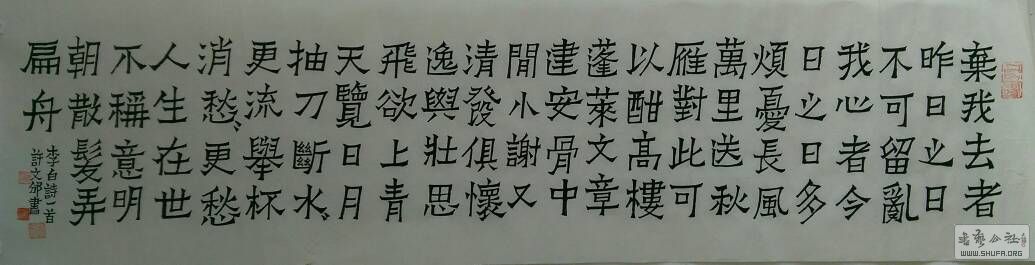 棄我去者
昨日之日
不可留亂
我心者今
日之日多
煩憂長風
萬里送秋
雁對此可
以酣高樓
蓬萊文章
建安骨中
閒小謝又
清發俱懷
逸與壯思
飛欲上青
天覽日月
抽刀斷水〻
更流舉杯
消愁〻更愁
人生在世
不稱意明
朝散髮弄
扁舟
李白詩一首
許文書
书艺公社
WWW.SHUFA.ORG